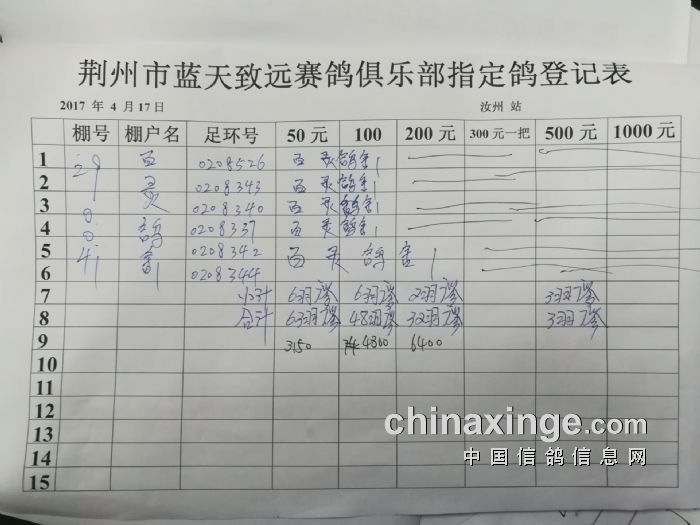 荆州市蓝天致远赛鸽俱乐部指定鸽登记表
2017 年 4 月 17 日 汝州 站
棚号 棚户名 足环号 50 元 100 200 元 300 元一把 500 元 1000 元
1 百 0208526 百灵鸽舍
2 灵 0208343 百灵鸽舍
3 0208340 百灵鸽舍
4 鸽 0208337 百灵鸽舍
5 0208342 百灵鸽舍
6 舍 0208344
7 小计 6羽 6羽 2羽 3羽
8 合计 63羽 48羽 32羽 3羽
9 3150 4800 6400
10
11
12
13
14
15
chinaxinge.com
中国信鸽信息网